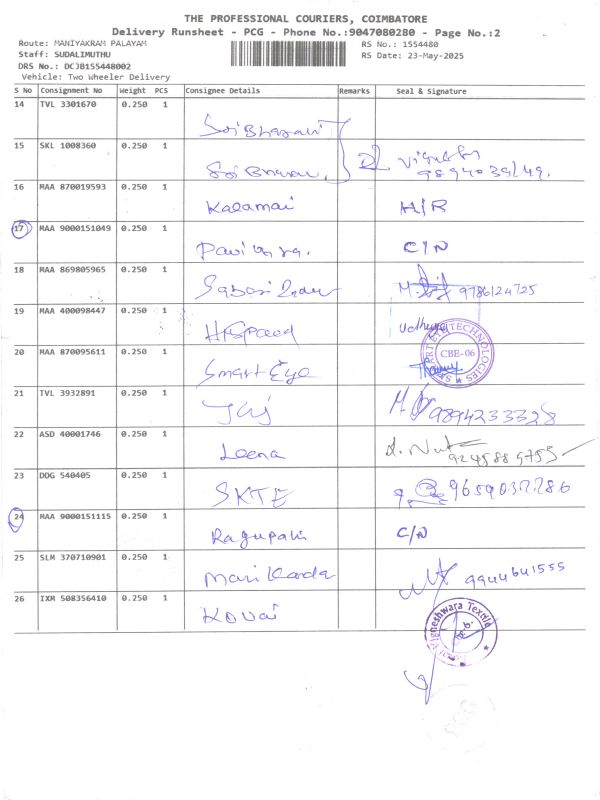 THE PROFESSIONAL COURIERS, COIMBATORE
Delivery Runsheet - PCG - Phone No.:9047080280 - Page No.:2
Route: MANIYAKRAM PALAYAM
RS No.: 1554480
Staff: SUDALIMUTHU
RS Date: 23-May-2025
DRS No.: DCJB155448002
Vehicle: Two Wheeler Delivery
S No Consignment No Weight PCS Consignee Details Remarks Seal & Signature
14 TVL 3301670 0.250 1
15 SKL 1008360 0.250 1
16 MAA 870019593 0.250 1 Kalamai H/R
17 MAA 9000151049 0.250 1 C/N
18 MAA 869805965 0.250 1 9786124725
19 MAA 400098447 0.250 1 HiSpeed Udhaya
20 MAA 870095611 0.250 1 Smart Eye
SMART EYE TECHNOLOGIES
CBE-06
21 TVL 3932891 0.250 1 9894233328
22 ASD 40001746 0.250 1 Leena 9245889755
23 DDG 540405 0.250 1 SKTE 9659037286
24 MAA 9000151115 0.250 1 Ragupathi C/N
25 SLM 370710901 0.250 1 9944641555
26 IXM 508356410 0.250 1 Kovai
Vigneshwara Textile
PCG